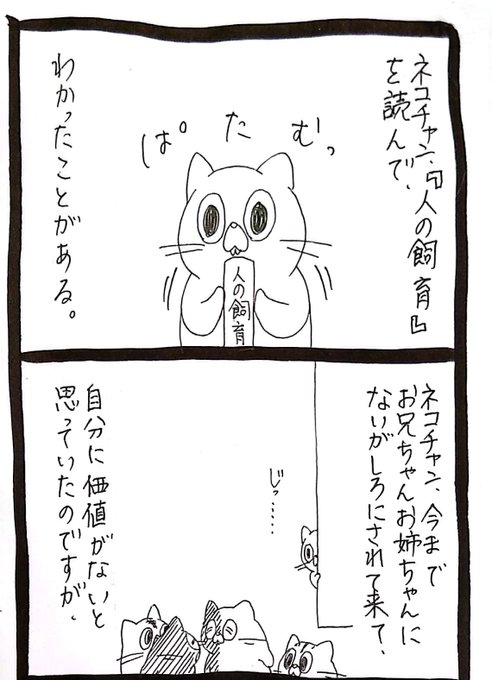 ネコチャン、『人の飼育』
を読んで、
わかったことがある。
ぱたむっ
人の飼育
ネコチャン、今まで
お兄ちゃんお姉ちゃんに
ないがしろにされて来て、
じっ……
自分に価値がないと
思っていたのですが、